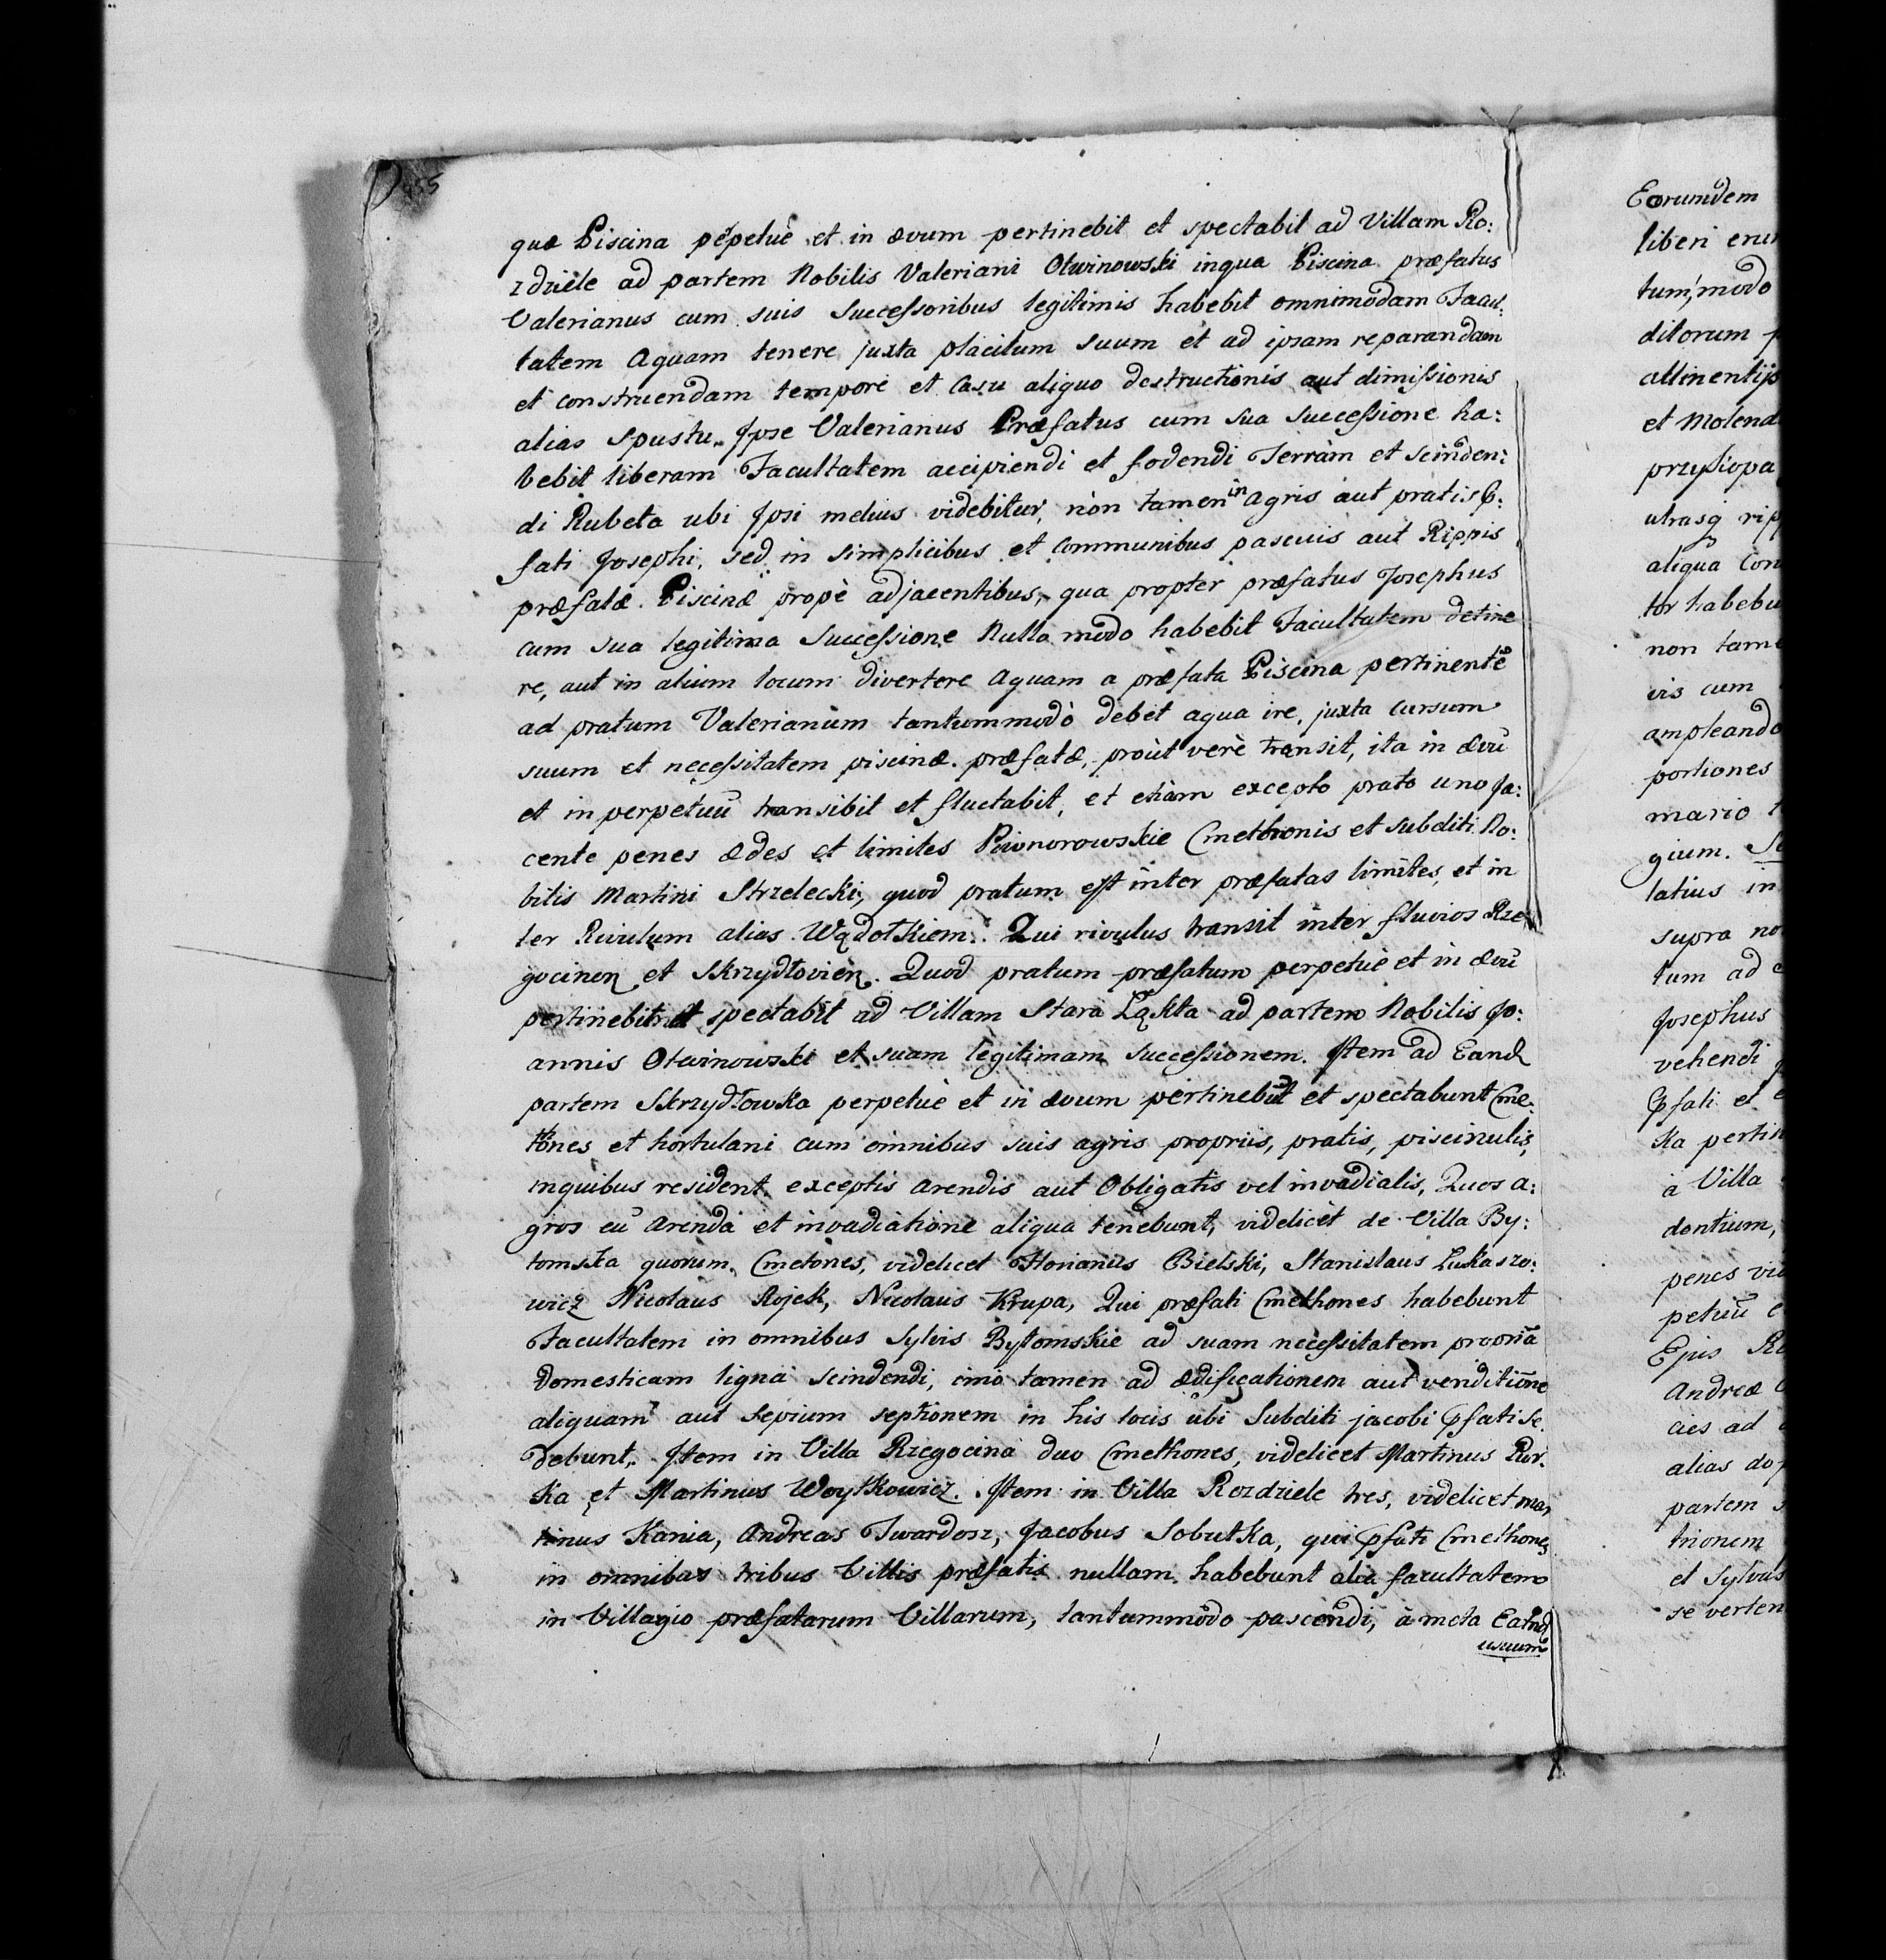 455
quæ Piscina pẽpetuè et in ævum pertinebit et spectabit ad Villam Ro:
zdziele ad partem Nobilis Valeriani Otwinowski inqua Piscina præfatus
Valerianus cum suis Successoribus legitimis habebit omnimodam Facul:
tatem Aquam tenere juxta placitum suum et ad ipsam reparandam
et construendam tempore et Casu aliquo destructionis aut dimissionis
alias Spustu. Ipse Valerianus Præfatus cum sua Successione ha:
bebit liberam Facultatem accipiendi et fodendi Terram et scinden:
di Rubeta ubi Ipsi melius videbitur, non tamen in agris aut pratis P:
fati Josephi, sed in simplicibus et Communibus pascuis aut Rippis
præfatæ Piscinæ propè adjacentibus, qua propter præfatus Josephus
cum sua legitima Successione Nullo modo habebit Facultatem detine
re, aut in alium locum divertere Aquam a præfata Piscina pertinentẽ
ad pratum Valerianum tantummodò debet aqua ire, juxta cursum
suum et necessitatem piscinæ præfatæ, proùt verè transit, ita in ævũ
et in perpetuũ transibit et fluctabit, et etiam excepto prato uno Ja:
cente penes ædes et limites Piwnorowskie Cmethonis et subditi No:
bilis Martini Strzelecki, quod pratum est inter præfatas limites, et in
ter Rivulum alias Wądołkiem. Qui rivulus transit inter fluvios Rze
gocinen et Skrzydłovien. Quod pratum præfatum perpetuè et in ævũ
pertinebit et spectabit ad Villam Stara Łąkta ad partem Nobilis Jo:
annis Otwinowski et suam legitimam successionem. Item ad Eand
partem Skrzydłowka perpetuè et in ævum pertinebũt et spectabunt Cme:
tones et hortulani cum omnibus suis agris propriis, pratis, piscinulis,
inquibus resident, exceptis arendis aut Obligatis vel invadialis, Quos a:
gros eũ arenda et invadiatione aliqua tenebunt, videlicet de Villa By:
tomska quorum Cmetones, videlicet Florianus Bielski, Stanislaus Łukaszo:
wicz Nicolaus Rojek, Nicolaus Krupa, Qui præfati Cmethones habebunt
Facultatem in omnibus Sylvis Bytomskie ad suam necessitatem propriã
Domesticam ligna scindendi, imo tamen ad ædificationem aut venditione
aliquam aut Sepium septionem in his locis ubi Subditi jacobi Pfati se
debunt. Item in Villa Rzegocina duo Cmethones, videlicet Martinus Ror:
ka et Martinus Woytkowicz. Item in Villa Rozdziele tres, videlicet Mar
tinus Kania, Andreas Twardosz, Jacobus Sobutka, qui Pfati Cmethones
in omnibus tribus Villis præfatis nullam habebunt alia facultatem
in Villagio præfatarum Villarum, tantummodo pascendi, à meta Earund
usuum
Eorumdem
liberi
tum, modo
ditorum
attinentijs
et Molend
przysiopa
utrasq rip
aliqua Con
tor habebu
non tame
vis cum
ampleando
portiones
mario
gium.
latius in
supra no
tum ad
Josephus
vehendi
Pfati et
ka pertin
à Villa
dentium,
penes
petuũ
Ejus
Andreæ
cies ad
alias
partem
trionem
et Sylvas
se verten